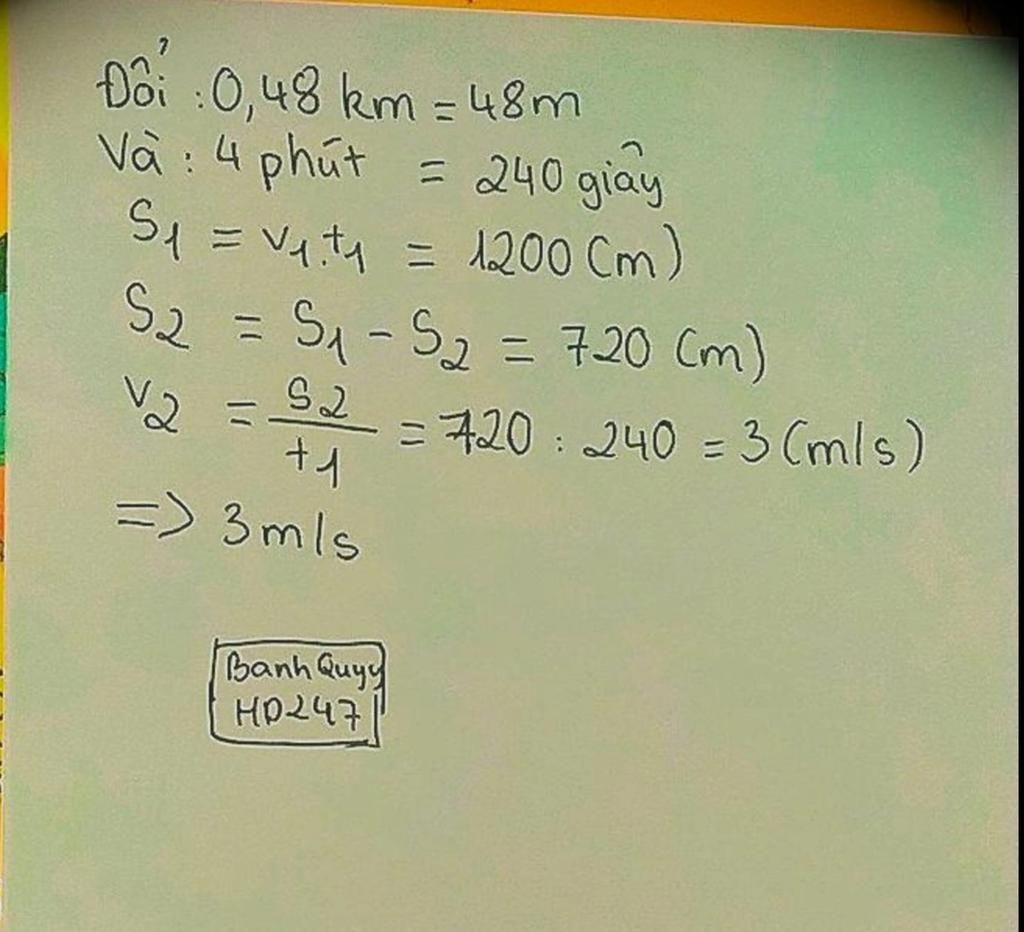 Đổi : 0,48 km = 48m
Và : 4 phút = 240 giây
S1 = v1.t1 = 1200 (m)
S2 = S1 - S2 = 720 (m)
v2 = S2/t1 = 720 : 240 = 3 (m/s)
=> 3m/s
Banh Quyy
HD247